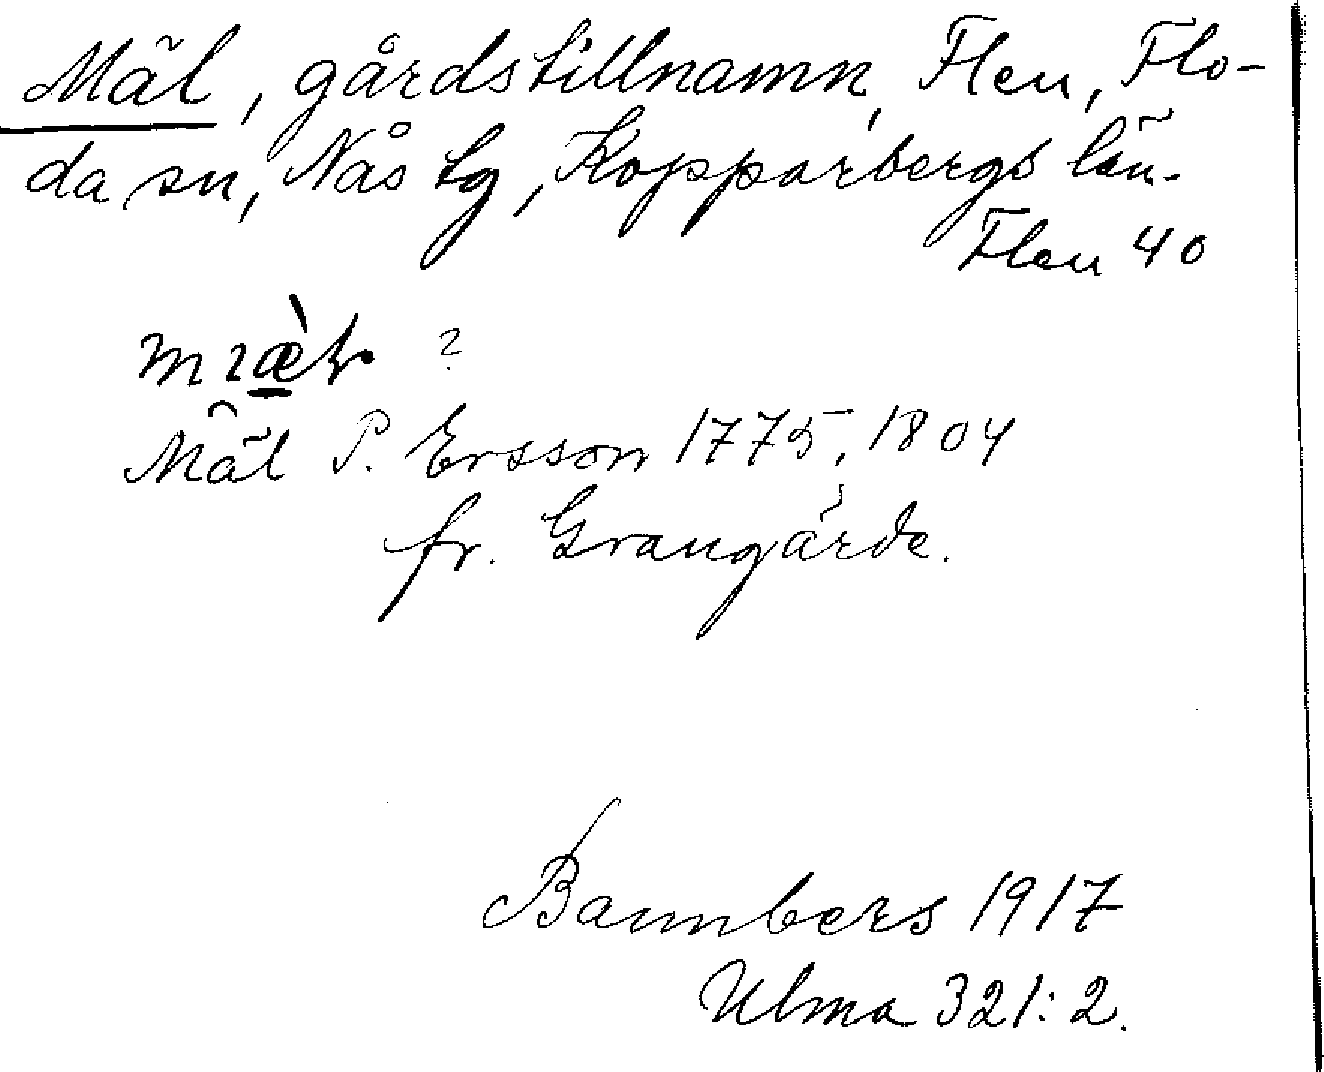 Mäl, gårdstillnamn, Flen, Flo-
da sn, Nås tg, Kopparbergs län.
Flen 40
?
Mäl P. Ersson 1775, 1804
fr. Grangärde.
Bannbers 1917
Ulma 321:2.